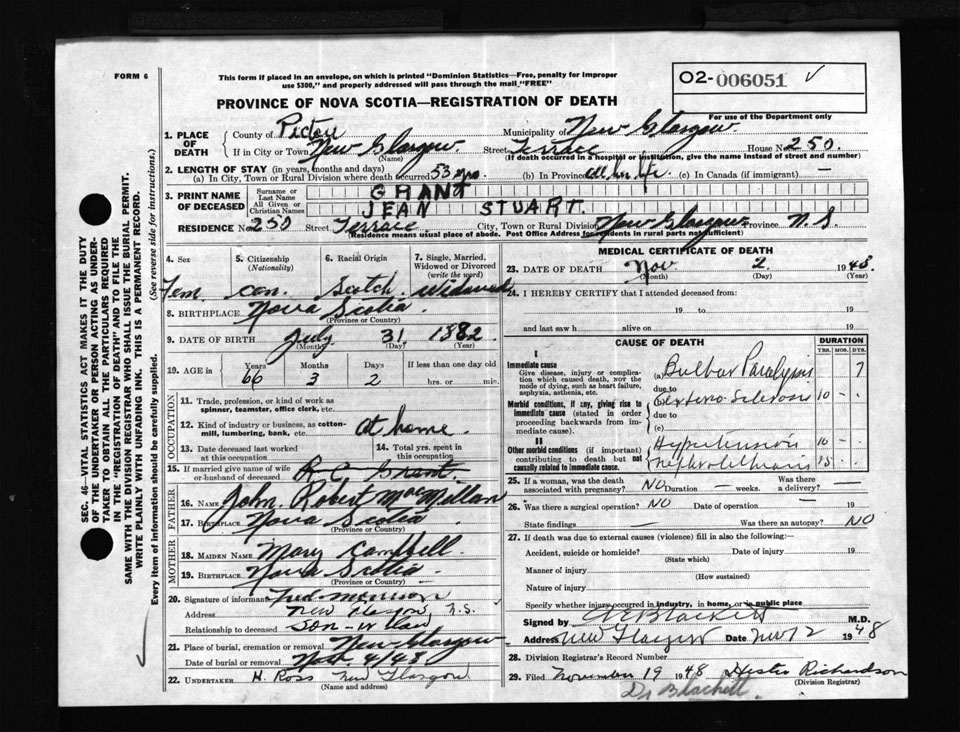 FORM 6
This form if placed in an envelope, on which is printed "Dominion Statistics—Free, penalty for improper
use $300," and properly addressed will pass through the mail "FREE"
O2-006051 √
For use of the Department only
PROVINCE OF NOVA SCOTIA—REGISTRATION OF DEATH
SEC. 46—VITAL STATISTICS ACT MAKES IT THE DUTY
OF THE UNDERTAKER OR PERSON ACTING AS UNDER-
TAKER TO OBTAIN ALL THE PARTICULARS REQUIRED
IN THE "REGISTRATION OF DEATH" AND TO FILE THE
SAME WITH THE DIVISION REGISTRAR WHO SHALL ISSUE THE BURIAL PERMIT.
WRITE PLAINLY WITH UNFADING INK. THIS IS A PERMANENT RECORD.
Every item of Information should be carefully supplied. (See reverse side for instructions.)
1. PLACE OF DEATH
County of Pictou Municipality of New Glasgow
If in City or Town New Glasgow Street Terrace House No 250.
(Name) (If death occurred in a hospital or institution, give the name instead of street and number)
2. LENGTH OF STAY (in years, months and days)
(a) In City, Town or Rural Division where death occurred 53 yrs. (b) In Province all her life (c) In Canada (if immigrant) —
3. PRINT NAME OF DECEASED
Surname or Last Name GRANT
All Given or Christian Names JEAN STUART.
RESIDENCE No 250 Street Terrace City, Town or Rural Division New Glasgow Province N. S.
(Residence means usual place of abode. Post Office Address for residents in rural parts not sufficient)
4. Sex 5. Citizenship (Nationality) 6. Racial Origin 7. Single, Married, Widowed or Divorced (write the word)
Fem Can. Scotch Widowed
8. BIRTHPLACE Nova Scotia
(Province or Country)
9. DATE OF BIRTH July 31 1882
(Month) (Day) (Year)
10. AGE in Years Months Days If less than one day old
66 3 2 hrs. or min.
OCCUPATION
11. Trade, profession, or kind of work as
spinner, teamster, office clerk, etc.
12. Kind of industry or business, as cotton-
mill, lumbering, bank, etc. at home.
13. Date deceased last worked at this occupation 14. Total yrs. spent in this occupation
15. If married give name of wife
or husband of deceased R. C Grant.
FATHER
16. Name John Robert MacMillan
17. Birthplace Nova Scotia
(Province or Country)
MOTHER
18. MAIDEN NAME Mary Campbell.
19. BIRTHPLACE Nova Scotia
(Province or Country)
20. Signature of informant
Address New Glasgow, N.S.
Relationship to deceased Son-in-law
21. Place of burial, cremation or removal New Glasgow
Date of burial or removal Nov 4/48
22. UNDERTAKER H. Ross New Glasgow
(Name and address)
MEDICAL CERTIFICATE OF DEATH
23. DATE OF DEATH Nov. 2. 1948.
(Month) (Day) (Year)
24. I HEREBY CERTIFY that I attended deceased from:
19 to 19
and last saw h alive on 19
CAUSE OF DEATH DURATION
YRS. MOS. DYS.
I
Immediate cause
Give disease, injury or complica-
tion which caused death, not the
mode of dying, such as heart failure,
asphyxia, asthenia, etc.
(a) Bulbar Paralysis 7
due to
Morbid conditions, if any, giving rise to
immediate cause (stated in order
proceeding backwards from im-
mediate cause).
Arterio Sclerosis 10 - -
due to
(c)
II
Other morbid conditions (if important)
contributing to death but not
causally related to immediate cause.
Hypertension 10 - -
Nephrolithiasis 15 - -
25. If a woman, was the death
associated with pregnancy? NO Duration — weeks. Was there a delivery? —
26. Was there a surgical operation? NO Date of operation — 19
State findings — Was there an autopsy? NO
27. If death was due to external causes (violence) fill in also the following:
Accident, suicide or homicide? Date of injury 19
(State which)
Manner of injury
(How sustained)
Nature of injury
Specify whether injury occurred in industry, in home, or in public place
Signed by Blackett M.D.
Address New Glasgow Date Nov 12 1948
28. Division Registrar's Record Number
29. Filed November 19 1948 Hester Richardson
(Division Registrar)
Dr Blackett.